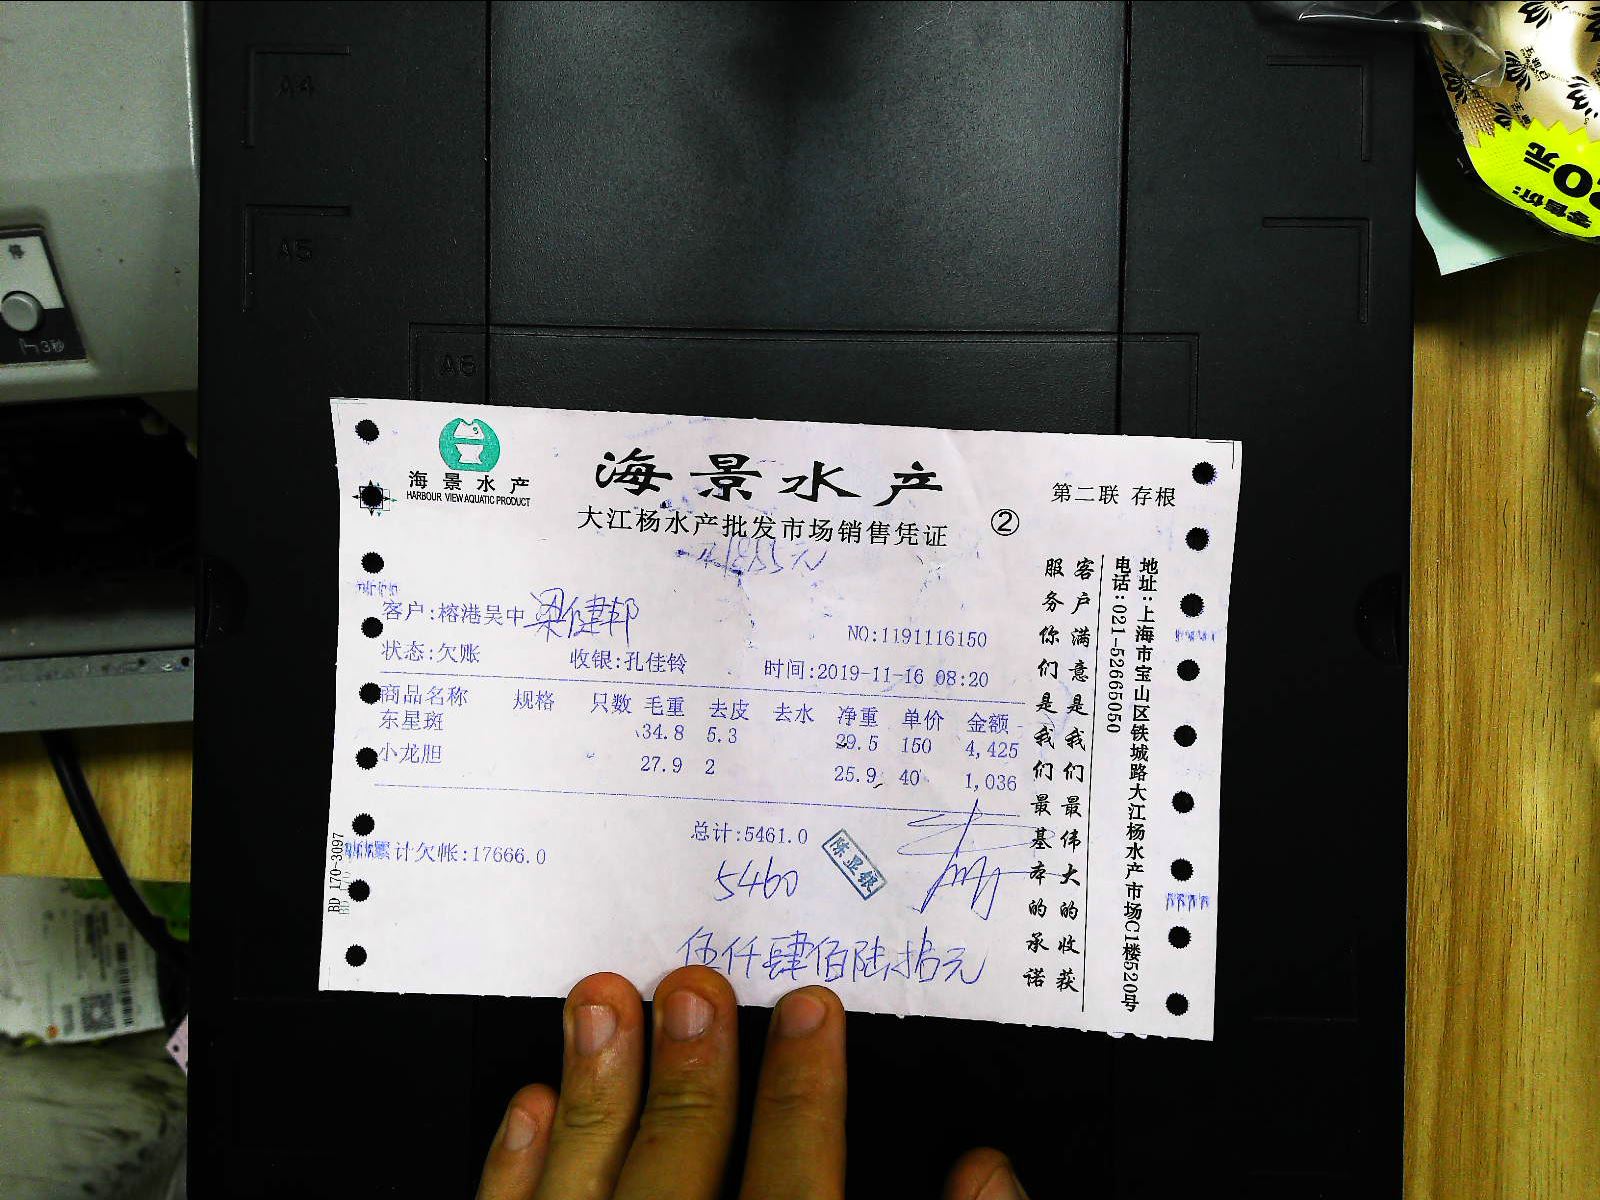 A4
A5
A6
3秒
零售价:
0元
海景水产
HARBOUR VIEW AQUATIC PRODUCT
海景水产
大江杨水产批发市场销售凭证
②
第二联 存根
客户:榕港吴中 梁健邦
NO:1191116150
状态:欠账 收银:孔佳铃 时间:2019-11-16 08:20
商品名称 规格 只数 毛重 去皮 去水 净重 单价 金额
东星斑 34.8 5.3 29.5 150 4,425
小龙胆 27.9 2 25.9 40 1,036
总计:5461.0
累计欠帐:17666.0
5460
陈亚银
伍仟肆佰陆拾元
客户满意是我们最伟大的收获
服务你们是我们最基本的承诺
地址:上海市宝山区铁城路大江杨水产市场C1楼520号
电话:021-52665050
BD 170-3097